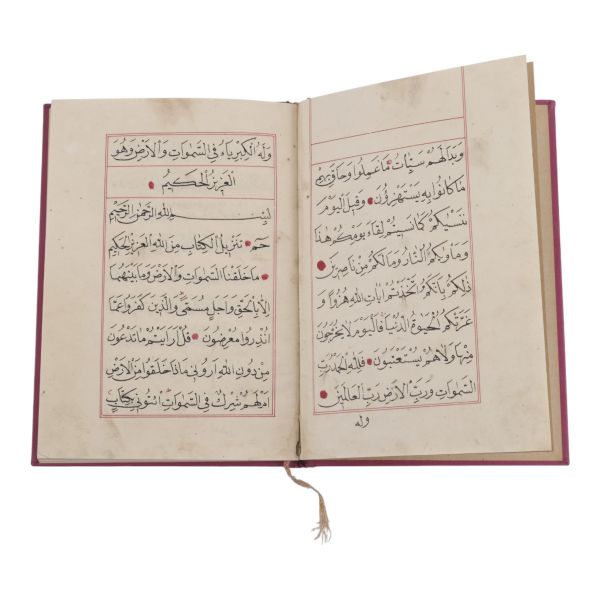 وَبَدَا لَهُمْ سَيِّئَاتُ مَا عَمِلُوا وَحَاقَ بِهِمْ
مَا كَانُوا بِهِ يَسْتَهْزِؤُنَ وَقِيلَ الْيَوْمَ
نَنْسٰيكُمْ كَمَا نَسِيتُمْ لِقَاءَ يَوْمِكُمْ هٰذَا
وَمَأْوٰيكُمُ النَّارُ وَمَا لَكُمْ مِنْ نَاصِرِينَ
ذٰلِكُمْ بِاَنَّكُمُ اتَّخَذْتُمْ اٰيَاتِ اللّٰهِ هُزُوًا وَ
غَرَّتْكُمُ الْحَيٰوةُ الدُّنْيَا فَالْيَوْمَ لَا يُخْرَجُونَ
مِنْهَا وَلَا هُمْ يُسْتَعْتَبُونَ فَلِلّٰهِ الْحَمْدُ رَبِّ
السَّمٰوَاتِ وَرَبِّ الْاَرْضِ رَبِّ الْعَالَمِينَ
وله
وَلَهُ الْكِبْرِيَاءُ فِي السَّمٰوَاتِ وَالْاَرْضِ وَهُوَ
الْعَزِيزُ الْحَكِيمُ
بِسْمِ اللّٰهِ الرَّحْمٰنِ الرَّحِيمِ
حٰمٓ تَنْزِيلُ الْكِتَابِ مِنَ اللّٰهِ الْعَزِيزِ الْحَكِيمِ
مَا خَلَقْنَا السَّمٰوَاتِ وَالْاَرْضَ وَمَا بَيْنَهُمَا
اِلَّا بِالْحَقِّ وَاَجَلٍ مُسَمًّى وَالَّذِينَ كَفَرُوا عَمَّا
اُنْذِرُوا مُعْرِضُونَ قُلْ اَرَاَيْتُمْ مَا تَدْعُونَ
مِنْ دُونِ اللّٰهِ اَرُونِي مَاذَا خَلَقُوا مِنَ الْاَرْضِ
اَمْ لَهُمْ شِرْكٌ فِي السَّمٰوَاتِ ائْتُونِي بِكِتَابٍ